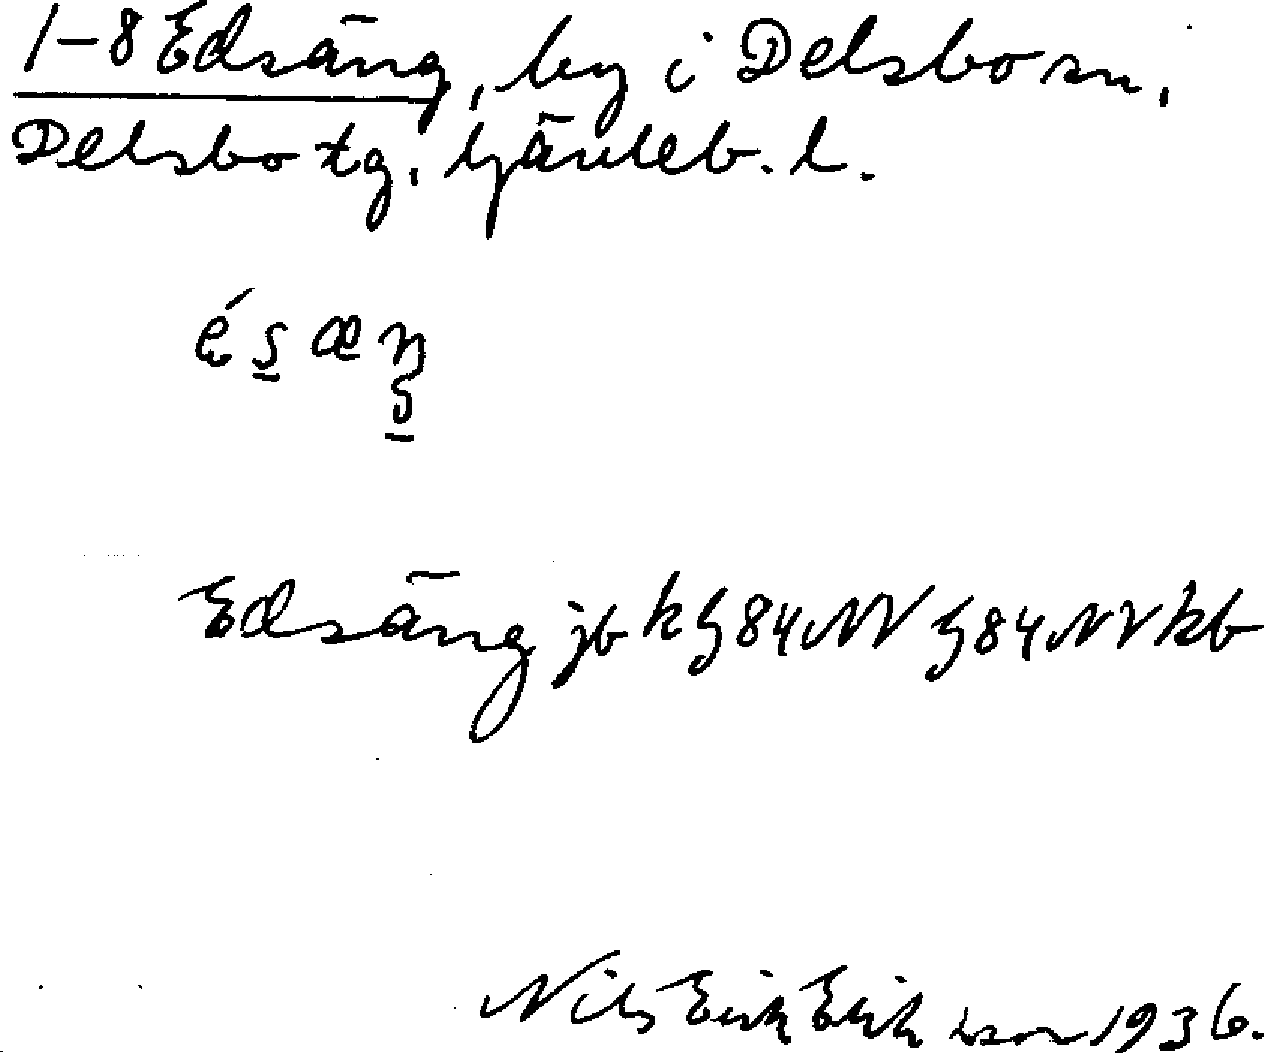 1-8 Edsäng, by i Delsbo sn,
Delsbo tg, Gävleb. l.
Edsäng jb k G 84 NV G 84 NV kb
Nils Erik Eriksson 1936.